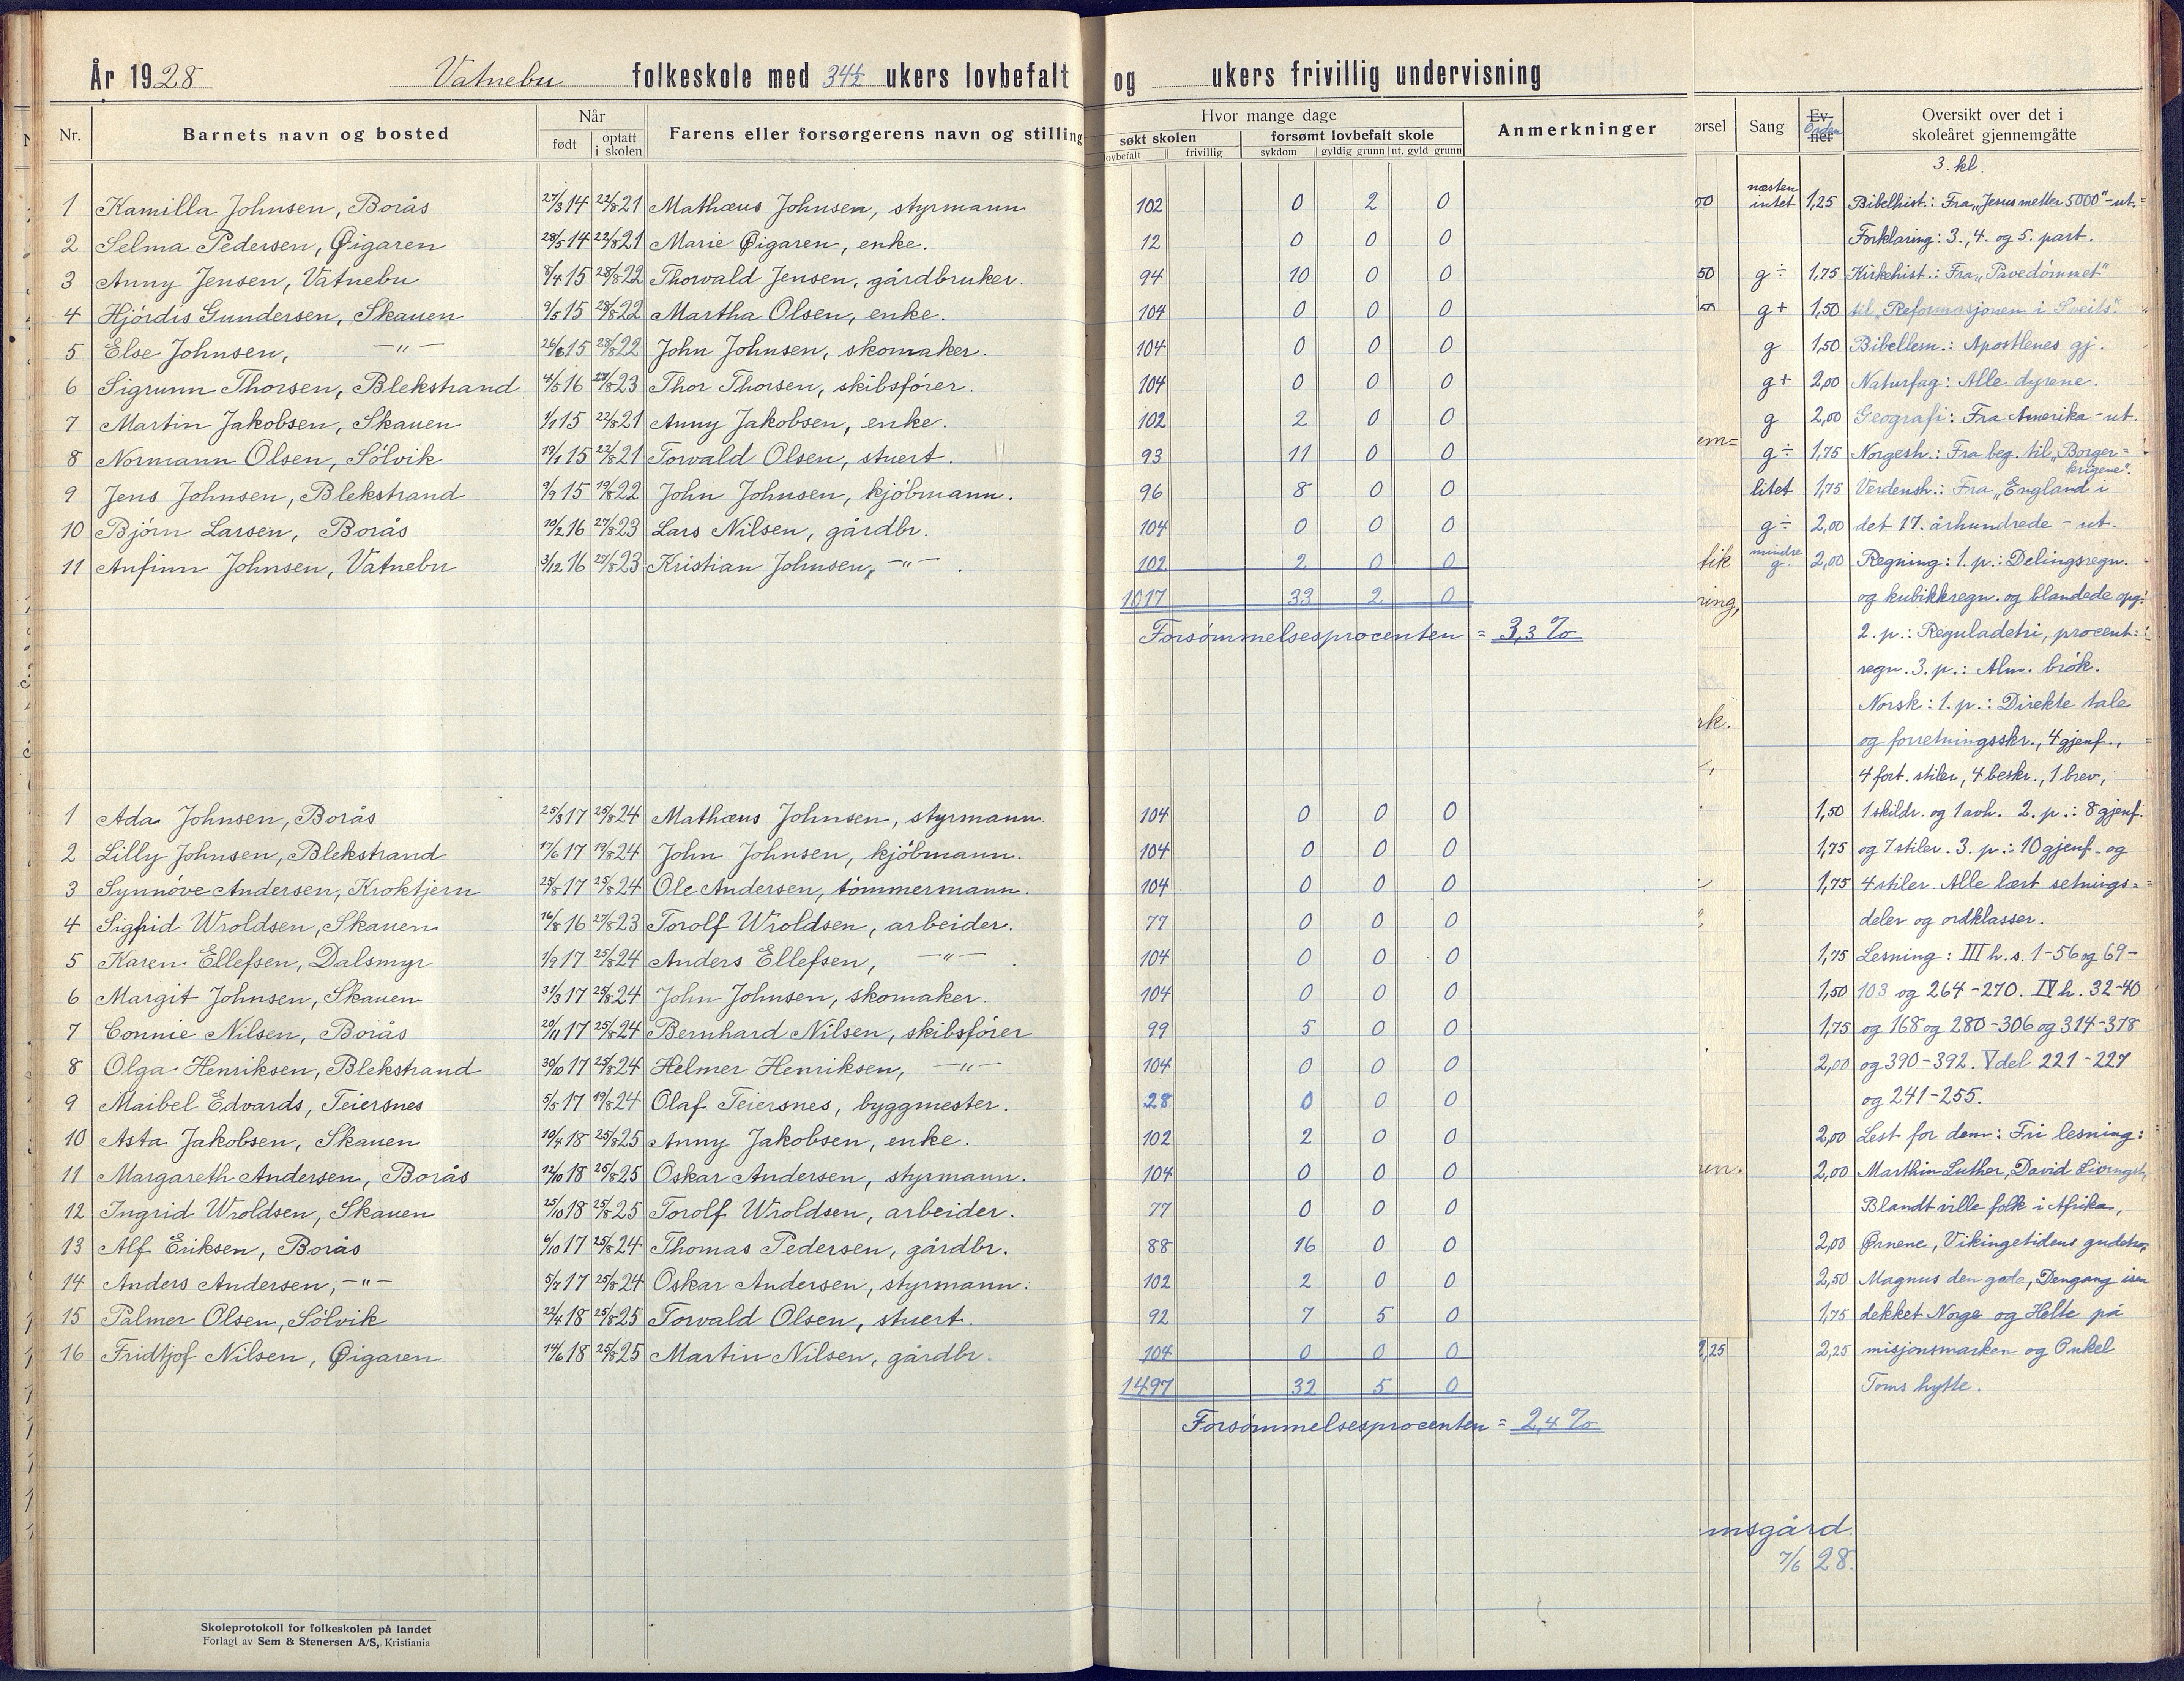 År 1928 Vatnebu folkeskole med 34½ ukers lovbefalt og ukers frivillig undervisning
Nr. Barnets navn og bosted Når født optatt i skolen Farens eller forsørgerens navn og stilling
Hvor mange dage
søkt skolen forsømt lovbefalt skole Anmerkninger
lovbefalt frivillig sykdom gyldig grunn ut. gyld. grunn
1 Kamilla Johnsen, Borås 27/3 14 22/8 21 Mathæus Johnsen, styrmann 102 0 2 0
2 Selma Pedersen, Øigaren 28/5 14 22/8 21 Marie Øigaren, enke. 12 0 0 0
3 Anny Jensen, Vatnebu 8/4 15 28/8 22 Thorvald Jensen, gårdbruker. 94 10 0 0
4 Hjördis Gundersen, Skauen 9/5 15 28/8 22 Martha Olsen, enke. 104 0 0 0
5 Else Johnsen, —"— 26/6 15 28/8 22 John Johnsen, skomaker. 104 0 0 0
6 Sigrunn Thorsen, Blekstrand 4/5 16 27/8 23 Thor Thorsen, skibsfører. 104 0 0 0
7 Martin Jakobsen, Skauen 1/1 15 22/8 21 Anny Jakobsen, enke. 102 2 0 0
8 Normann Olsen, Sölvik 19/1 15 22/8 21 Torvald Olsen, stuert. 93 11 0 0
9 Jens Johnsen, Blekstrand 9/9 15 19/8 22 John Johnsen, kjöbmann. 96 8 0 0
10 Björn Larsen, Borås 10/2 16 27/8 23 Lars Nilsen, gårdbr. 104 0 0 0
11 Anfinn Johnsen, Vatnebu 3/12 16 27/8 23 Kristian Johnsen, —"— . 102 2 0 0
1017 33 2 0
Forsömmelsesprocenten = 3,3 %
1 Ada Johnsen, Borås 25/3 17 25/8 24 Mathæus Johnsen, styrmann. 104 0 0 0
2 Lilly Johnsen, Blekstrand 17/6 17 19/8 24 John Johnsen, kjöbmann. 104 0 0 0
3 Synnöve Andersen, Kroktjern 25/8 17 25/8 24 Ole Andersen, tömmermann. 104 0 0 0
4 Sigfrid Wroldsen, Skauen 16/8 16 27/8 23 Torolf Wroldsen, arbeider. 77 0 0 0
5 Karen Ellefsen, Dalsmyr 1/9 17 25/8 24 Anders Ellefsen, —"— . 104 0 0 0
6 Margit Johnsen, Skauen 31/3 17 25/8 24 John Johnsen, skomaker. 104 0 0 0
7 Connie Nilsen, Borås 20/11 17 25/8 24 Bernhard Nilsen, skibsförer 99 5 0 0
8 Olga Henriksen, Blekstrand 30/10 17 25/8 24 Helmer Henriksen, —"— 104 0 0 0
9 Maibel Edvards, Teiersnes 5/5 17 19/8 24 Olaf Teiersnes, byggmester. 28 0 0 0
10 Asta Jakobsen, Skauen 10/4 18 25/8 25 Anny Jakobsen, enke. 102 2 0 0
11 Margareth Andersen, Borås 12/10 18 25/8 25 Oskar Andersen, styrmann. 104 0 0 0
12 Ingrid Wroldsen, Skauen 25/10 18 25/8 25 Torolf Wroldsen, arbeider. 77 0 0 0
13 Alf Eriksen, Borås 6/10 17 25/8 24 Thomas Pedersen, gårdbr. 88 16 0 0
14 Anders Andersen, —"— 5/7 17 25/8 24 Oskar Andersen, styrmann. 102 2 0 0
15 Palmer Olsen, Sölvik 22/4 18 25/8 25 Torvald Olsen, stuert. 92 7 5 0
16 Fridtjof Nilsen, Øigaren 14/6 18 25/8 25 Martin Nilsen, gårdbr. 104 0 0 0
1497 32 5 0
Forsömmelsesprocenten = 2,4 %
Skoleprotokoll for folkeskolen på landet
Forlagt av Sem & Stenersen A/S, Kristiania
ørsel Sang Ev-ner Orden Oversikt over det i skoleåret gjennemgåtte
3. kl.
næsten intet 1,25 Bibelhist.: Fra „Jesus metter 5000" - ut.
Forklaring: 3., 4. og 5. part.
50 g ÷ 1,75 Kirkehist.: Fra „Pavedömmet"
g + 1,50 til „Reformasjonen i Sveits".
g 1,50 Bibellesn.: Apostlenes gj.
g + 2,00 Naturfag: Alle dyrene.
g 2,00 Geografi: Fra Amerika - ut.
g ÷ 1,75 Norgesh.: Fra beg. til „Borgerkrigene".
litet 1,75 Verdensh.: Fra „England i
g ÷ 2,00 det 17. århundrede - ut.
tik mindre g. 2,00 Regning: 1. p.: Delingsregn.
ring, og kubikkregn. og blandede opg.
2. p.: Reguladetri, procent=
regn. 3. p.: Alm. brök.
Norsk: 1. p.: Direkte tale
rk. og forretningsskr., 4 gjenf.,
4 fort. stiler, 4 beskr., 1 brev,
1,50 1 skildr. og 1 avh. 2. p.: 8 gjenf.
1,75 og 7 stiler. 3. p.: 10 gjenf. og
1,75 4 stiler. Alle lært setnings=
deler og ordklasser.
1,75 Lesning: III h. s. 1-56 og 69-
1,50 103 og 264-270. IV h. 32-40
1,75 og 168 og 280-306 og 314-378
2,00 og 390-392. V del 221-227
og 241-255.
2,00 Lest for dem: Fri lesning:
2,00 Marthin Luther, David Livingst.,
Blandt ville folk i Afrika,
2,00 Ørnene, Vikingetidens gudetro,
2,50 Magnus den gode, Dengang isen
1,75 dekket Norge og Helte på
2,25 2,25 misjonsmarken og Onkel
Toms hytte.
msgård.
7/6 28.